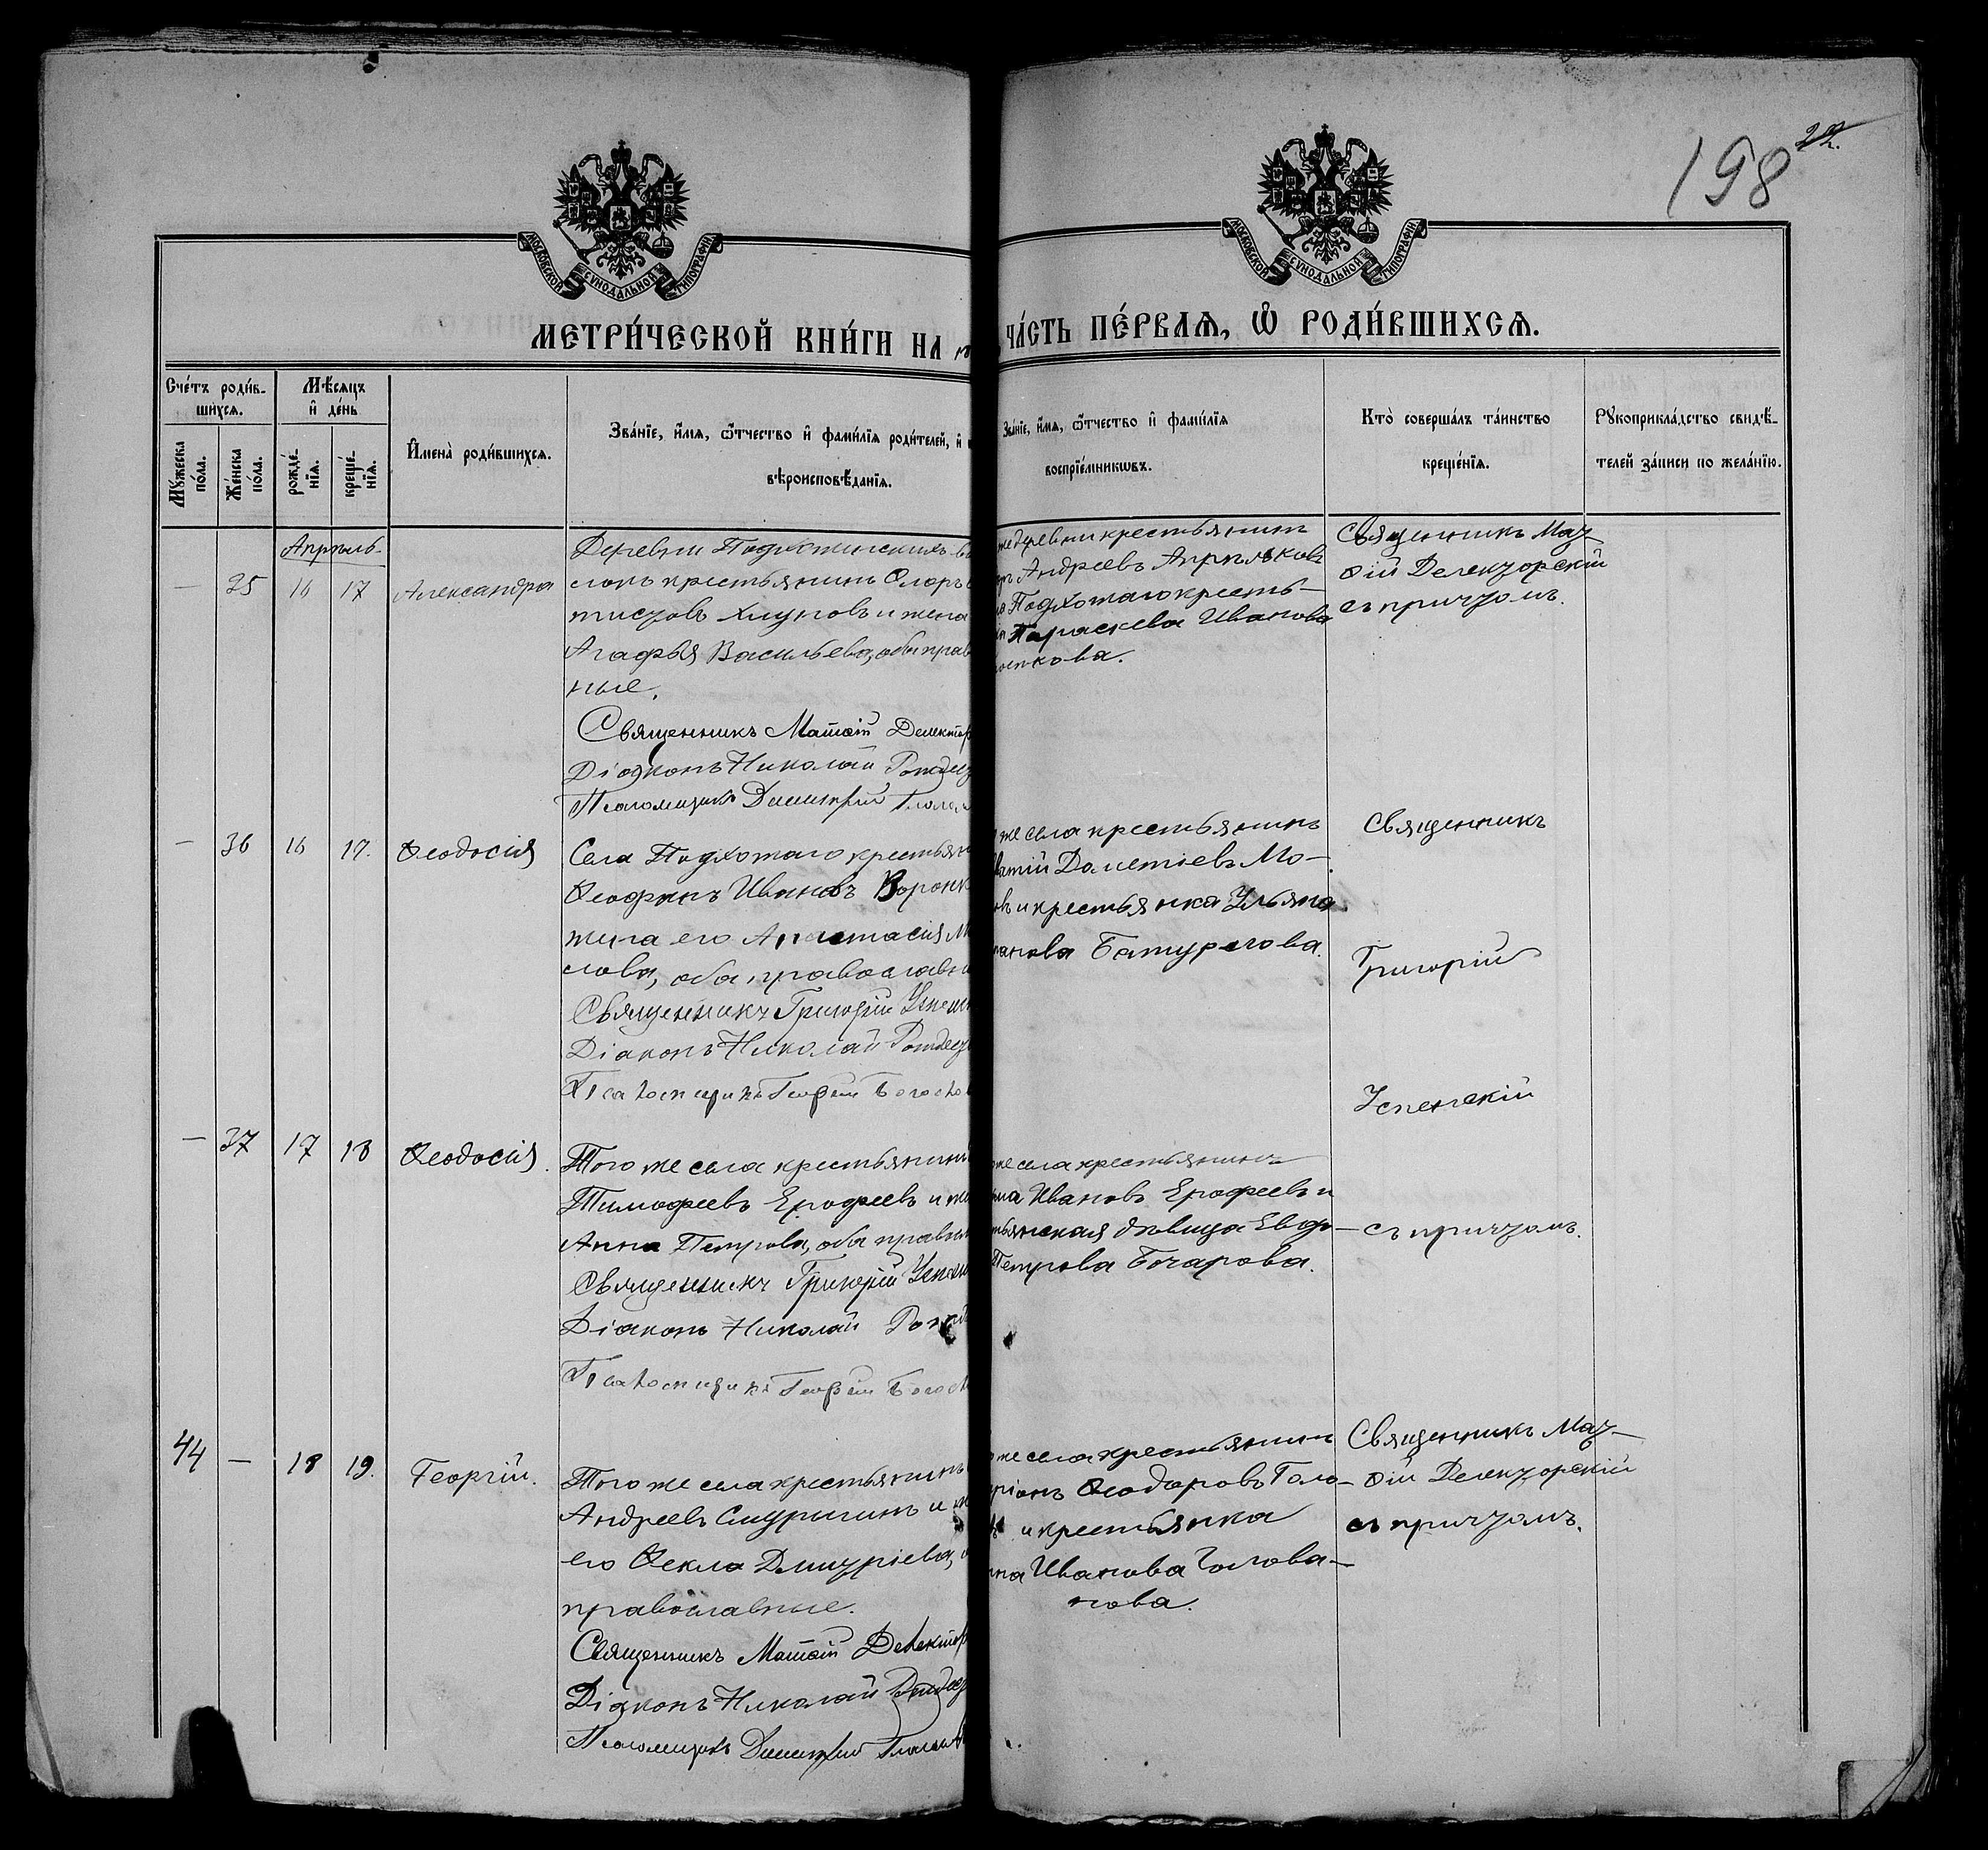 198 22.
МОСКОВСКОЙ СѴНОДАЛЬНОЙ ТИПОГРАФІИ.
МОСКОВСКОЙ СѴНОДАЛЬНОЙ ТИПОГРАФІИ.
МЕТРИ́ЧЕСКОЙ КНИ́ГИ НА
ЧА́СТЬ ПЕ́РВАѦ, Ѽ РОДИ́ВШИХСѦ.
Сче́тъ роди́в-
шихсѧ.
Мѣ́сѧцъ
и҆ де́нь
Му́жеска
по́ла.
Же́нска
по́ла.
рожде́-
нїѧ.
креще́-
нїѧ.
И҆мена̀ роди́вшихсѧ.
Зва́нїе, и҆́мѧ, ѻ҆́тчество и҆ фамі́лїѧ роди́телей, и҆
вѣроисповѣ́данїѧ.
Зва́нїе, и҆́мѧ, ѻ҆́тчество и҆ фамі́лїѧ
воспрїе́мникѡвъ.
Кто̀ соверша́лъ та́инство
креще́нїѧ.
Рꙋкоприкла́дство свидѣ́-
телей за́писи по жела́нїю.
Апрѣль
— 25 16 17 Александра
Деревни Подхотинскихъ
слокъ крестьянинъ Флоръ
тистовъ Хлуповъ и жена
Агафья Васильева, оба прав
ные.
Священникъ Матѳій Делектор
Діаконъ Николай Рождес
Псаломщикъ Димитрій
же деревни крестьянинъ
Андреевъ Апрѣлковъ
Подхотаго кресть-
Параскева Иванова
кова.
Священникъ Мат-
ѳій Делекторскій
съ причтомъ.
— 36 16 17. Ѳеодосія
Села Подхотаго крестьян
Ѳеофанъ Ивановъ Воронк
жена его Анастасія М
слова, оба православн
Священникъ Григорій Успен
Діаконъ Николай Рождес
Псаломщикъ Георгій Богосло
же села крестьянинъ
Дометіевъ Мо-
въ и крестьянка Ульяна
анова Батурегова.
Священникъ
Григорій
Успенскій
съ причтомъ.
— 37 17 18 Ѳеодосія.
Того же села крестьянинъ
Тимофеевъ Ерофеевъ и же
Анна Петрова, оба правосл
Священникъ Григорій Успен
Діаконъ Николай Рожд
Псаломщикъ Георгій Богосл
же села крестьянинъ
ма Ивановъ Ерофеевъ и
тьянская дѣвица Евдо-
Петрова Бочарова.
44 — 18 19. Георгій.
Того же села крестьянинъ
Андреевъ Смурыгинъ и ж
его Ѳекла Дмитріева, о
православные.
Священникъ Матѳій Делектор
Діаконъ Николай Рождес
Псаломщикъ Димитрій
же села крестьянинъ
ріонъ Ѳеодоровъ Голо-
въ и крестьянка
на Иванова Голова-
нова.
Священникъ Мат-
ѳій Делекторскій
съ причтомъ.